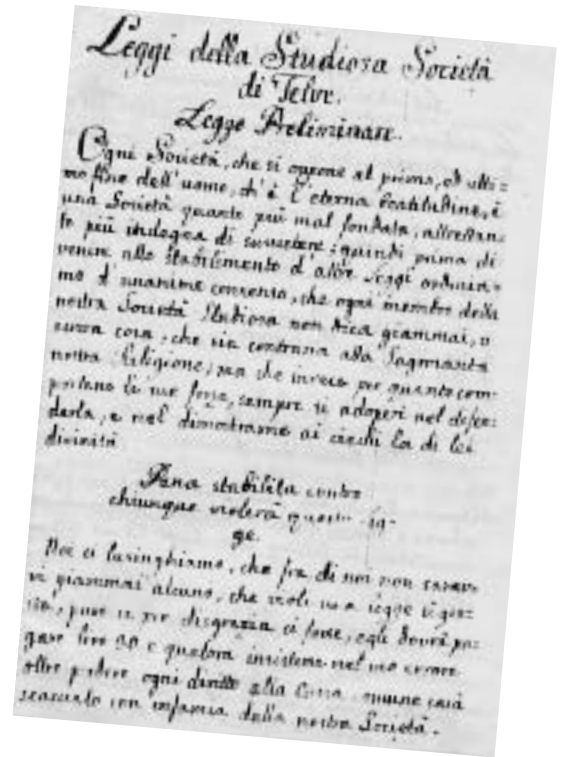 Leggi della Studiosa Società
di Telve.
Legge Preliminare.
Ogni Società, che si oppone al primo, ed ulti=
mo fine dell'uomo, ch'è l'eterna beatitudine, è
una Società quanto più mal fondata, altrettan=
to più indegna di sussistere; quindi prima di
venire allo stabilimento d'altre Leggi ordinia=
mo d'unanime consenso, che ogni membro della
nostra Società Studiosa non dica giammai, o
cosa, che sia contraria alla Sagrosanta
nostra Religione; ma che invece per quanto com=
portano le sue forze, sempre si adoperi nel difen=
derla, e nel dimostrarne ai ciechi la di lei
divinità
Pena stabilita contro
chiunque violerà questa leg=
ge.
Noi ci lusinghiamo, che fra di noi non
vi giammai alcuno, che violi una legge sì
pure se per disgrazia ci fosse, egli dovrà pa=
gare lire 30 e qualora insistesse nel suo errore
oltre perdere ogni diritto alla Cassa comune sarà
scacciato con infamia dalla nostra Società.